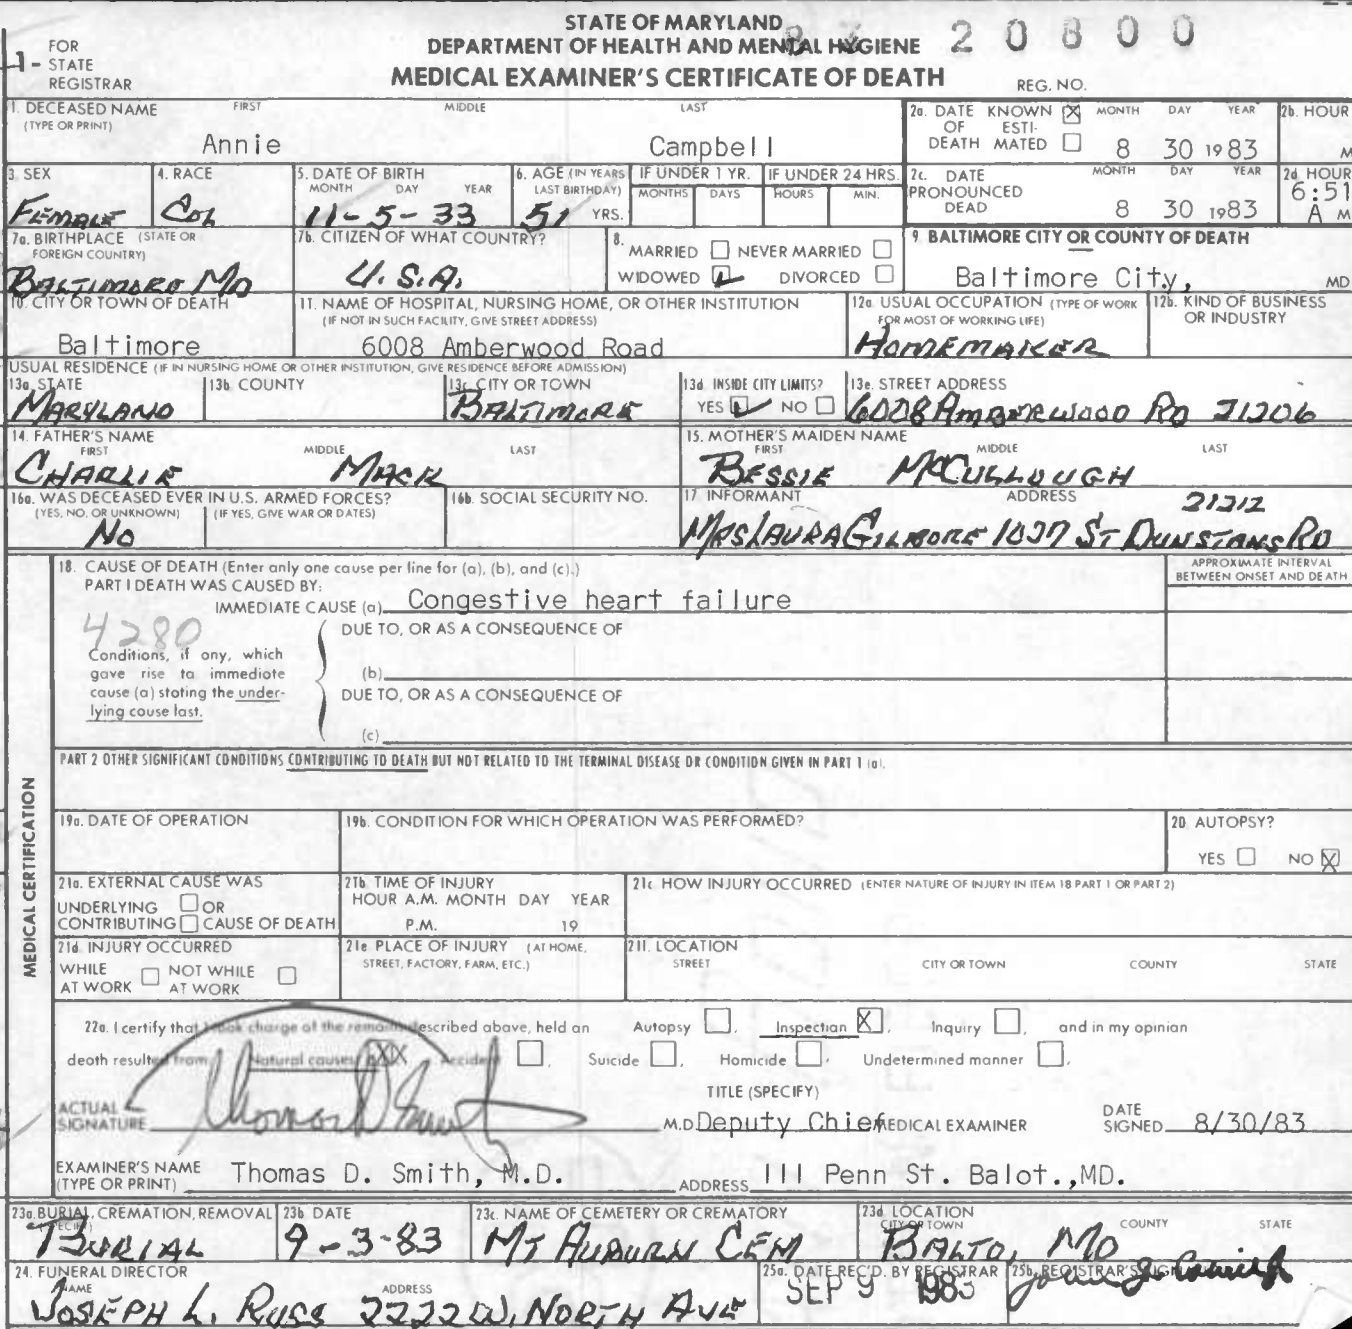 STATE OF MARYLAND
DEPARTMENT OF HEALTH AND MENTAL HYGIENE 20800
MEDICAL EXAMINER'S CERTIFICATE OF DEATH REG. NO.
1- FOR STATE REGISTRAR
1. DECEASED NAME (TYPE OR PRINT) FIRST MIDDLE LAST
Annie Campbell
2a. DATE OF DEATH KNOWN X ESTIMATED MONTH DAY YEAR 8 30 1983
2b. HOUR M
3. SEX Female
4. RACE Col
5. DATE OF BIRTH MONTH DAY YEAR 11-5-33
6. AGE (IN YEARS LAST BIRTHDAY) 51 YRS.
IF UNDER 1 YR. MONTHS DAYS
IF UNDER 24 HRS. HOURS MIN.
2c. DATE PRONOUNCED DEAD MONTH DAY YEAR 8 30 1983
2d HOUR 6:51 A M
7a. BIRTHPLACE (STATE OR FOREIGN COUNTRY) BALTIMORE MD
7b. CITIZEN OF WHAT COUNTRY? U.S.A.
8. MARRIED NEVER MARRIED
WIDOWED ✓ DIVORCED
9. BALTIMORE CITY OR COUNTY OF DEATH
Baltimore City, MD
10. CITY OR TOWN OF DEATH
Baltimore
11. NAME OF HOSPITAL, NURSING HOME, OR OTHER INSTITUTION
(IF NOT IN SUCH FACILITY, GIVE STREET ADDRESS)
6008 Amberwood Road
12a. USUAL OCCUPATION (TYPE OF WORK FOR MOST OF WORKING LIFE)
HOMEMAKER
12b. KIND OF BUSINESS OR INDUSTRY
USUAL RESIDENCE (IF IN NURSING HOME OR OTHER INSTITUTION, GIVE RESIDENCE BEFORE ADMISSION)
13a. STATE MARYLAND
13b. COUNTY
13c. CITY OR TOWN BALTIMORE
13d. INSIDE CITY LIMITS? YES ✓ NO
13e. STREET ADDRESS 6008 AMBERWOOD RD 21206
14. FATHER'S NAME FIRST MIDDLE LAST
CHARLIE MACK
15. MOTHER'S MAIDEN NAME FIRST MIDDLE LAST
BESSIE McCULLOUGH
16a. WAS DECEASED EVER IN U.S. ARMED FORCES?
(YES, NO, OR UNKNOWN) (IF YES, GIVE WAR OR DATES)
No
16b. SOCIAL SECURITY NO.
17 INFORMANT ADDRESS 21212
MRS LAURA GILMORE 1037 ST DUNSTANS RD
18. CAUSE OF DEATH (Enter only one cause per line for (a), (b), and (c).)
PART I DEATH WAS CAUSED BY:
APPROXIMATE INTERVAL BETWEEN ONSET AND DEATH
IMMEDIATE CAUSE (a) Congestive heart failure
4280
DUE TO, OR AS A CONSEQUENCE OF
Conditions, if any, which gave rise to immediate cause (a) stating the underlying cause last.
(b)
DUE TO, OR AS A CONSEQUENCE OF
(c)
PART 2 OTHER SIGNIFICANT CONDITIONS CONTRIBUTING TO DEATH BUT NOT RELATED TO THE TERMINAL DISEASE OR CONDITION GIVEN IN PART 1 (a).
MEDICAL CERTIFICATION
19a. DATE OF OPERATION
19b. CONDITION FOR WHICH OPERATION WAS PERFORMED?
20 AUTOPSY?
YES NO X
21a. EXTERNAL CAUSE WAS
UNDERLYING OR
CONTRIBUTING CAUSE OF DEATH
21b. TIME OF INJURY
HOUR A.M. MONTH DAY YEAR
P.M. 19
21c HOW INJURY OCCURRED (ENTER NATURE OF INJURY IN ITEM 18 PART 1 OR PART 2)
21d INJURY OCCURRED
WHILE AT WORK NOT WHILE AT WORK
21e PLACE OF INJURY (AT HOME, STREET, FACTORY, FARM, ETC.)
21f. LOCATION
STREET CITY OR TOWN COUNTY STATE
22a. I certify that I took charge of the remains described above, held an Autopsy, Inspection X, Inquiry, and in my opinion
death resulted from Natural causes XX Accident, Suicide, Homicide, Undetermined manner.
TITLE (SPECIFY)
ACTUAL SIGNATURE Thomas D. Smith M.D. Deputy Chief MEDICAL EXAMINER DATE SIGNED 8/30/83
EXAMINER'S NAME (TYPE OR PRINT) Thomas D. Smith, M.D. ADDRESS 111 Penn St. Balot.,MD.
23a. BURIAL, CREMATION, REMOVAL (SPECIFY) BURIAL
23b DATE 9-3-83
23c. NAME OF CEMETERY OR CREMATORY MT AUBURN CEM
23d LOCATION CITY OR TOWN COUNTY STATE BALTO, MD
24. FUNERAL DIRECTOR
NAME ADDRESS
JOSEPH L. RUSS 2222 W. NORTH AVE
25a. DATE REC'D. BY REGISTRAR SEP 9 1983
25b. REGISTRAR'S SIGNATURE